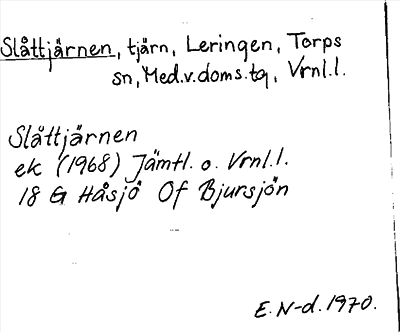 Slåttjärnen, tjärn, Leringen, Torps
sn, Med.v.doms.tg, Vrnl.l.
Slåttjärnen
ek (1968) Jämtl. o. Vrnl.l.
18 G Håsjö Of Bjursjön
E. N-d. 1970.